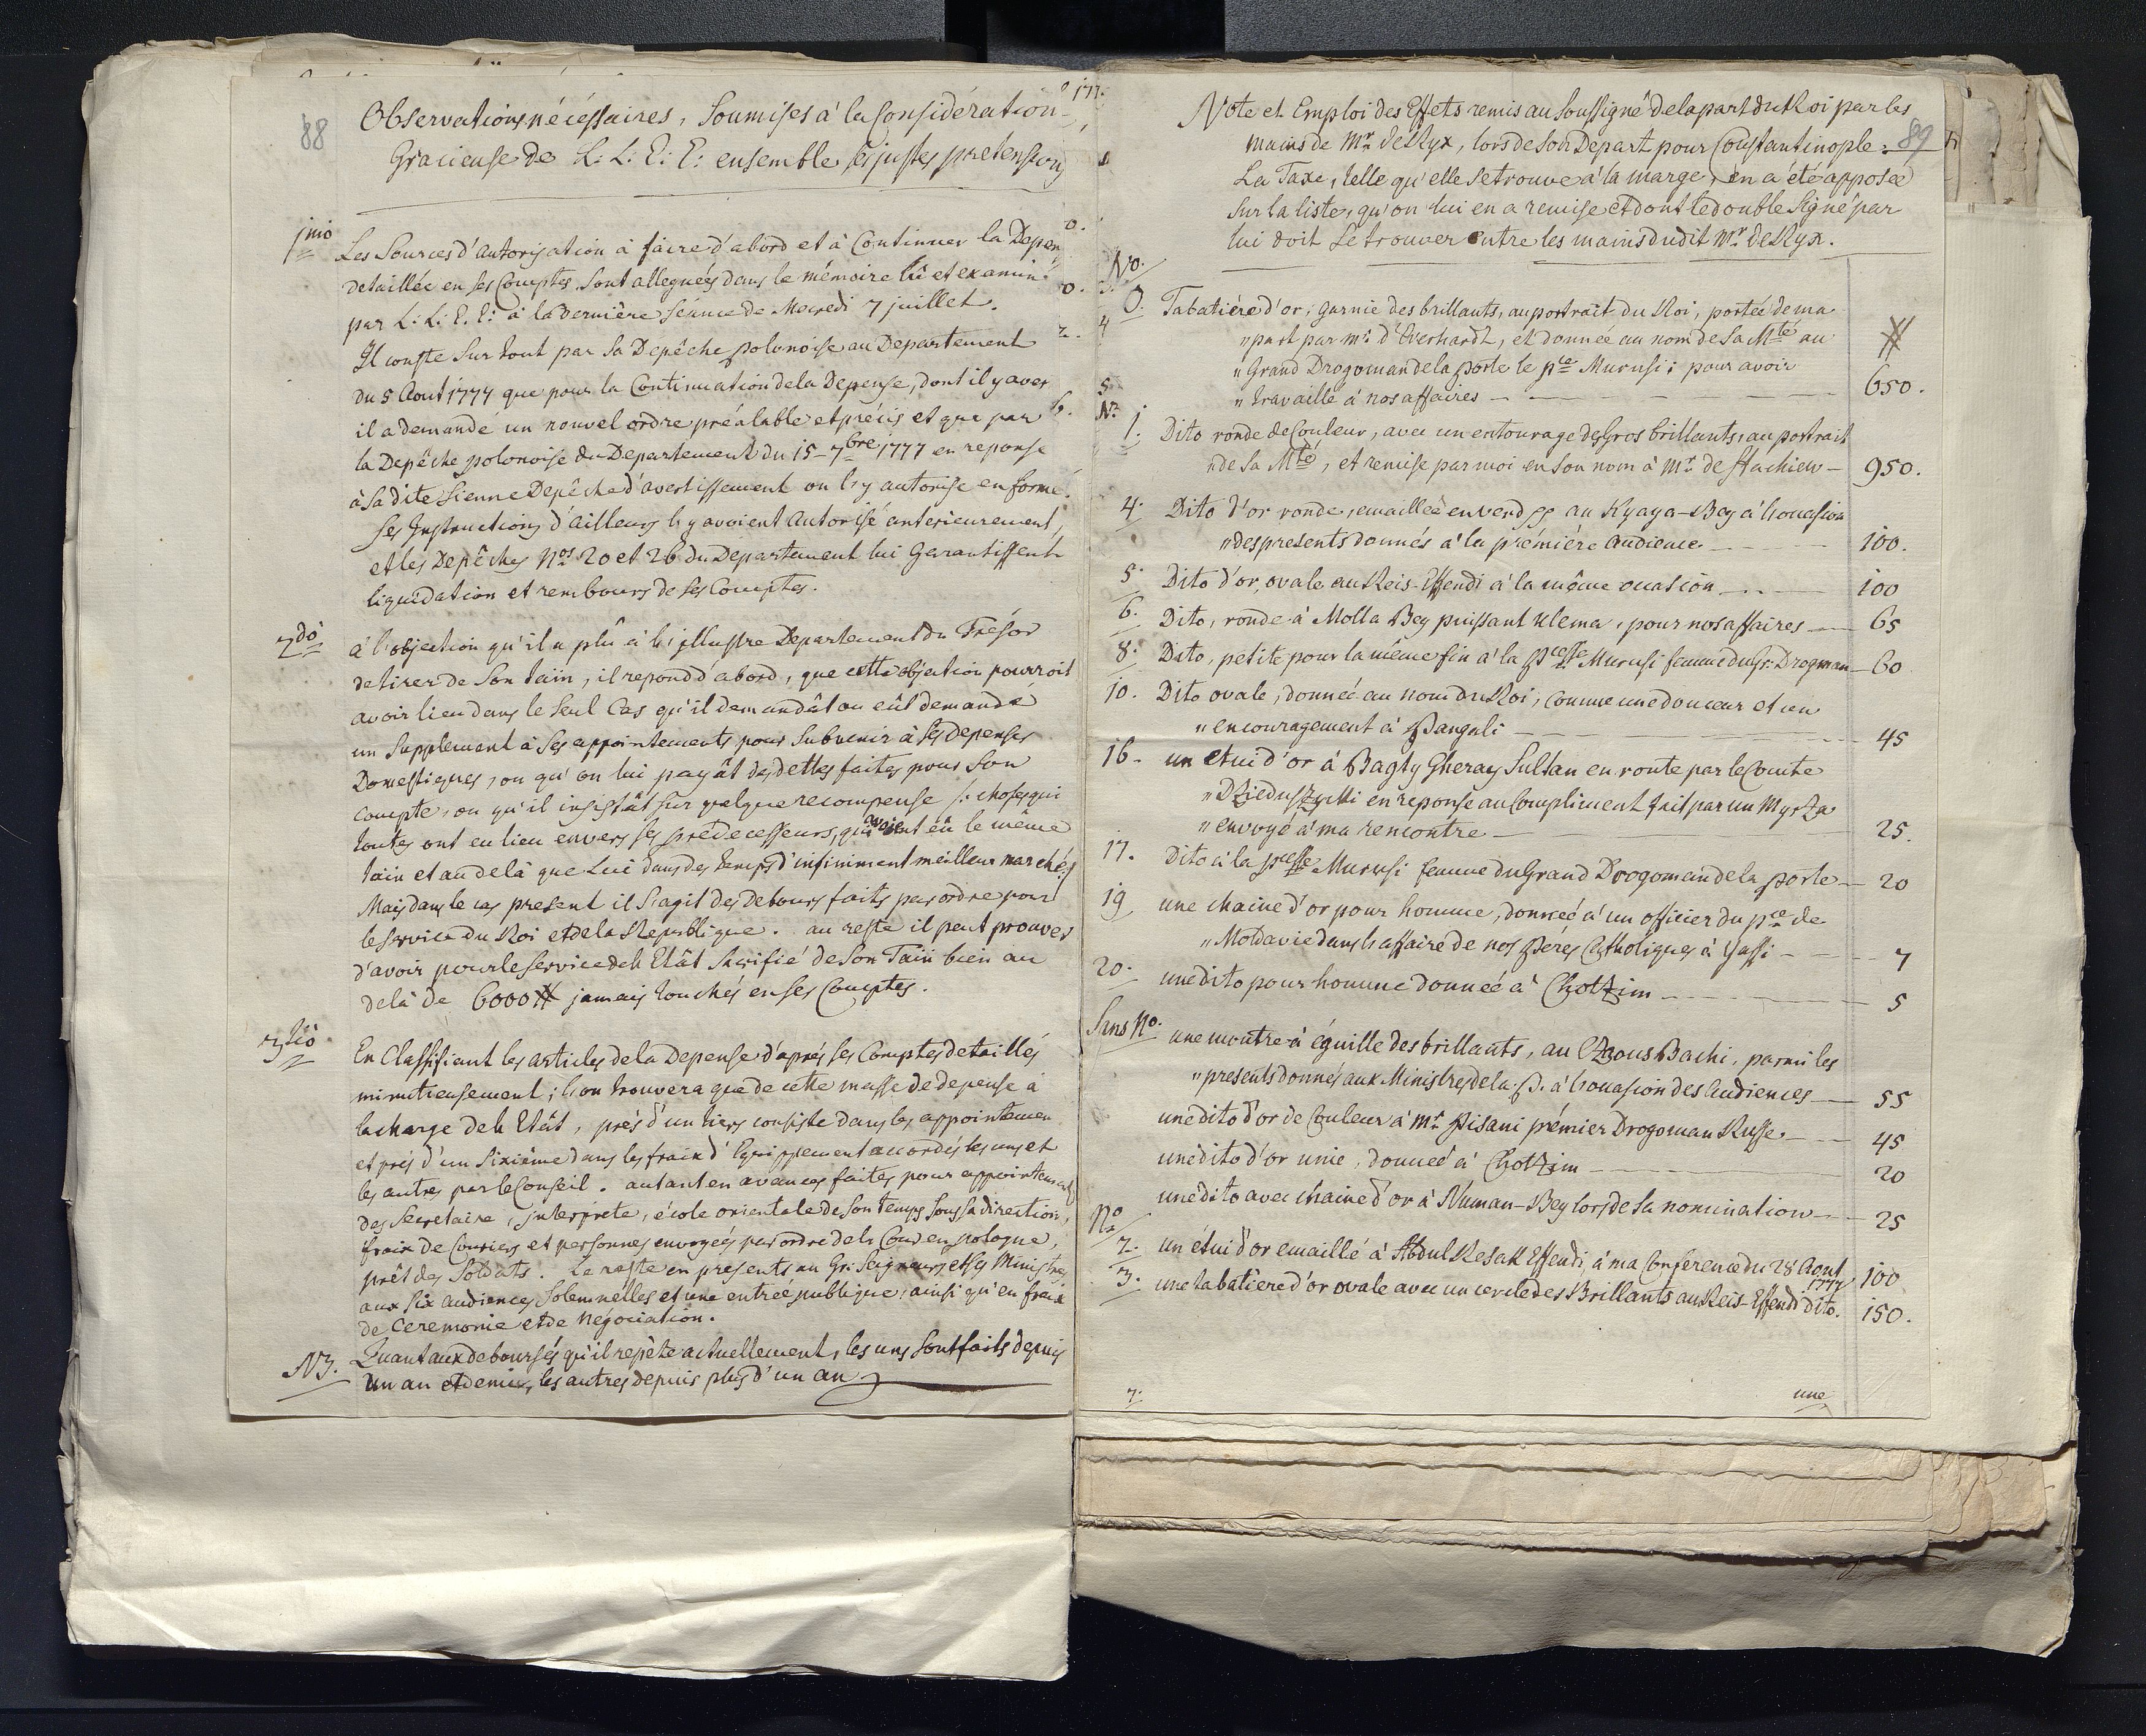 88
Observations nécéssaires, Soumises à la Considération
Gracieuse de L: L: E: E: ensemble ses justes prétensions
1mo Les Sources d'Autorisation à faire d'abord et à Continuer la Depen
detaillée en ses Comptes, Sont alleguées dans le mémoire lû et examiné
par L: L: E. E: à la derniére Séance de Mecredi 7 juillet.
Il conste Sur tout par Sa Depêche polonoise au Departement
du 5 Aout 1777 que pour la Continuation de la Depense, dont il y avoit
il a demandé un nouvel ordre préalable et précis et que par
la Depêche polonoise du Departement du 15 7bre 1777 en reponse
à Sa dite Sienne Depêche d'avertissement on l'y autorise en forme.
Ses Instructions d'ailleurs l'y avoient Autorisé anterieurement,
et les Depêches Nos 20 et 26 du Departement lui Garantissent
liquidation et rembours de ses Comptes.
2do à l'objection qu'il a plû à l'illustre Departement du Trésor
de tirer de Son tain, il repond d'abord, que cette objection pourroit
avoir lieu dans le Seul Cas qu'il demandât ou eût demandé
un Supplement à Ses appointements pour Subvenir à Ses depenses
Domestiques, ou qu'on lui payât des dettes faites pour Son
compte, ou qu'il insistât Sur quelque recompense /: choses qui
toutes ont eu lieu envers ses prédecesseurs, qui avoient eû le même
tain et au delà que Lui dans des temps d'infiniment meilleur marché:/
Mais dans le cas present il S'agit des Debours faits par ordre pour
le Service du Roi et de la Republique. au reste il peut prouver
d'avoir pour le Service de l'Etât Sacrifié de Son Tain bien au
delà de 6000 # jamais touchés en ses Comptes.
3tio En Classifiant les articles de la Depense d'aprés ses Comptes detaillés
minutieusement; l'on trouvera que de cette masse de depense à
la charge de l'Etât, prés d'un tiers consiste dans les appointemen
et prés d'un Sixiéme dans les fraix d'Equippement accordés les uns et
les autres par le Conseil. autant en avances faites pour appointements
des Secretaire, interprete, école orientale de Son temps Sous Sa direction,
fraix de Couriers et personnes envoyées par ordre de la Cour en pologne,
prêt des Soldats. Le reste en presents au Gr: Seigneur, et Ses Ministres
aux Six Audiences Solemnelles et une entrée publique, ainsi qu'en fraix
de Ceremonie et de Négociation.
NB. Quant aux deboursés qu'il repéte actuellement, les uns Sont faits depuis
un an et demie, les autres depuis plus d'un an
89
Note et Emploi des Effets remis au Soussigné de la part du Roi par les
mains de Mr. de Ryx, lors de Son Depart pour Constantinople.
La Taxe, telle qu'elle Se trouve à la marge, en a été apposée
Sur la liste, qu'on lui en a remise et dont le double Signé par
lui doit Se trouver entre les mains dudit Mr. de Ryx.
No.
0. Tabatiére d'or, garnie des brillants, au portrait du Roi, portée de ma
" part par Mr. d'Everhardt, et donnée au nom de Sa Mté au #
" Grand Drogoman de la porte le pce Murusi; pour avoir
" travaillé à nos affaires 650.
No.
1. Dito ronde de Couleur, avec un entourage des Gros brillants, au portrait
" de Sa Mté, et remise par moi en Son nom à Mr. de Stachiew 950.
4. Dito d'or ronde, emaillée en verd au Kyaya-Bey à l'ouasion
" des presents donnés à la prémiére Audience 100.
5. Dito d'or, ovale au Reis-Effendi à la même ouasion 100
6. Dito, ronde à Molla Bey puissant Ulema, pour nos affaires 65
8. Dito, petite pour la même fin à la Pcesse Murusi femme du Gr: Drogman 60
10. Dito ovale, donnée au nom du Roi, comme une douceur et un
" encouragement à Pangali 45
16. un étui d'or à Bagty Gheray Sultan en route par le Comte
" Dzieduszycki en réponse au Compliment fait par un Myrza
" envoyé à ma rencontre 25.
17. Dito à la Pcesse Murusi femme du Grand Drogoman de la porte 20
19 une chaine d'or pour homme, donnée à un officier du pce de
" Moldavie dans l'affaire de nos Peres Catholiques à Yassi 7
20. une dito pour homme donnée à Chotzim 5
Sans No. une montre à éguille des brillants, au Czaous Bachi, parmi les
" presents donnés aux Ministres de la P. à l'ouasion des Audiences 55
une dito d'or de Couleur à Mr. Pisani prémier Drogoman Russe 45
une dito d'or unie, donnée à Chotzim 20
une dito avec chaine d'or à Numan-Bey lors de Sa nomination 25
No
2. un étui d'or emaillé à Abdul Resak Effendi, à ma Conference du 28 Aout 1777 100
3. une tabatiere d'or ovale avec un cercle des Brillants au Reis-Effendi dito. 150.
une